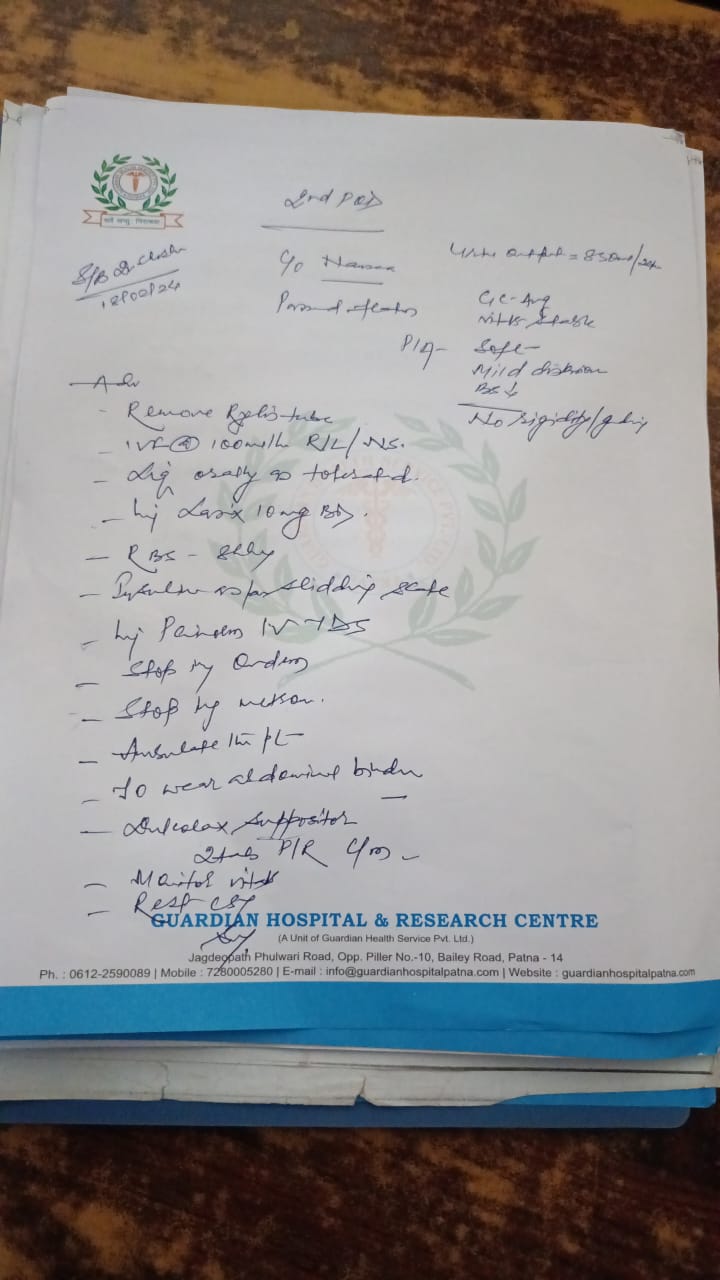 2nd POD
S/B Dr.
C/o Nausea
Passed flatus
Urine output = 850ml/24
GC-Avg
Vitals stable
P/A- Soft
Mild distension
BS ↓
No rigidity/
Adv
- Remove Ryles tube
- IVF @ 100ml/h R/L/NS.
- Liq orally as tolerated.
- Inj Lasix 10mg BD.
- RBS -
- Insulin as per slidding scale
- Inj IV TDS
- Stop Inj
- Stop Inj
- the pt
- To wear abdominal binder
- Dulcolax suppositor
2tab P/R
- Monitor vitals
- Rest
सर्वे सन्तु निरामया
GUARDIAN HOSPITAL & RESEARCH CENTRE
(A Unit of Guardian Health Service Pvt. Ltd.)
Jagdeopath Phulwari Road, Opp. Piller No.-10, Bailey Road, Patna - 14
Ph. : 0612-2590089 | Mobile : 7280005280 | E-mail : info@guardianhospitalpatna.com | Website : guardianhospitalpatna.com